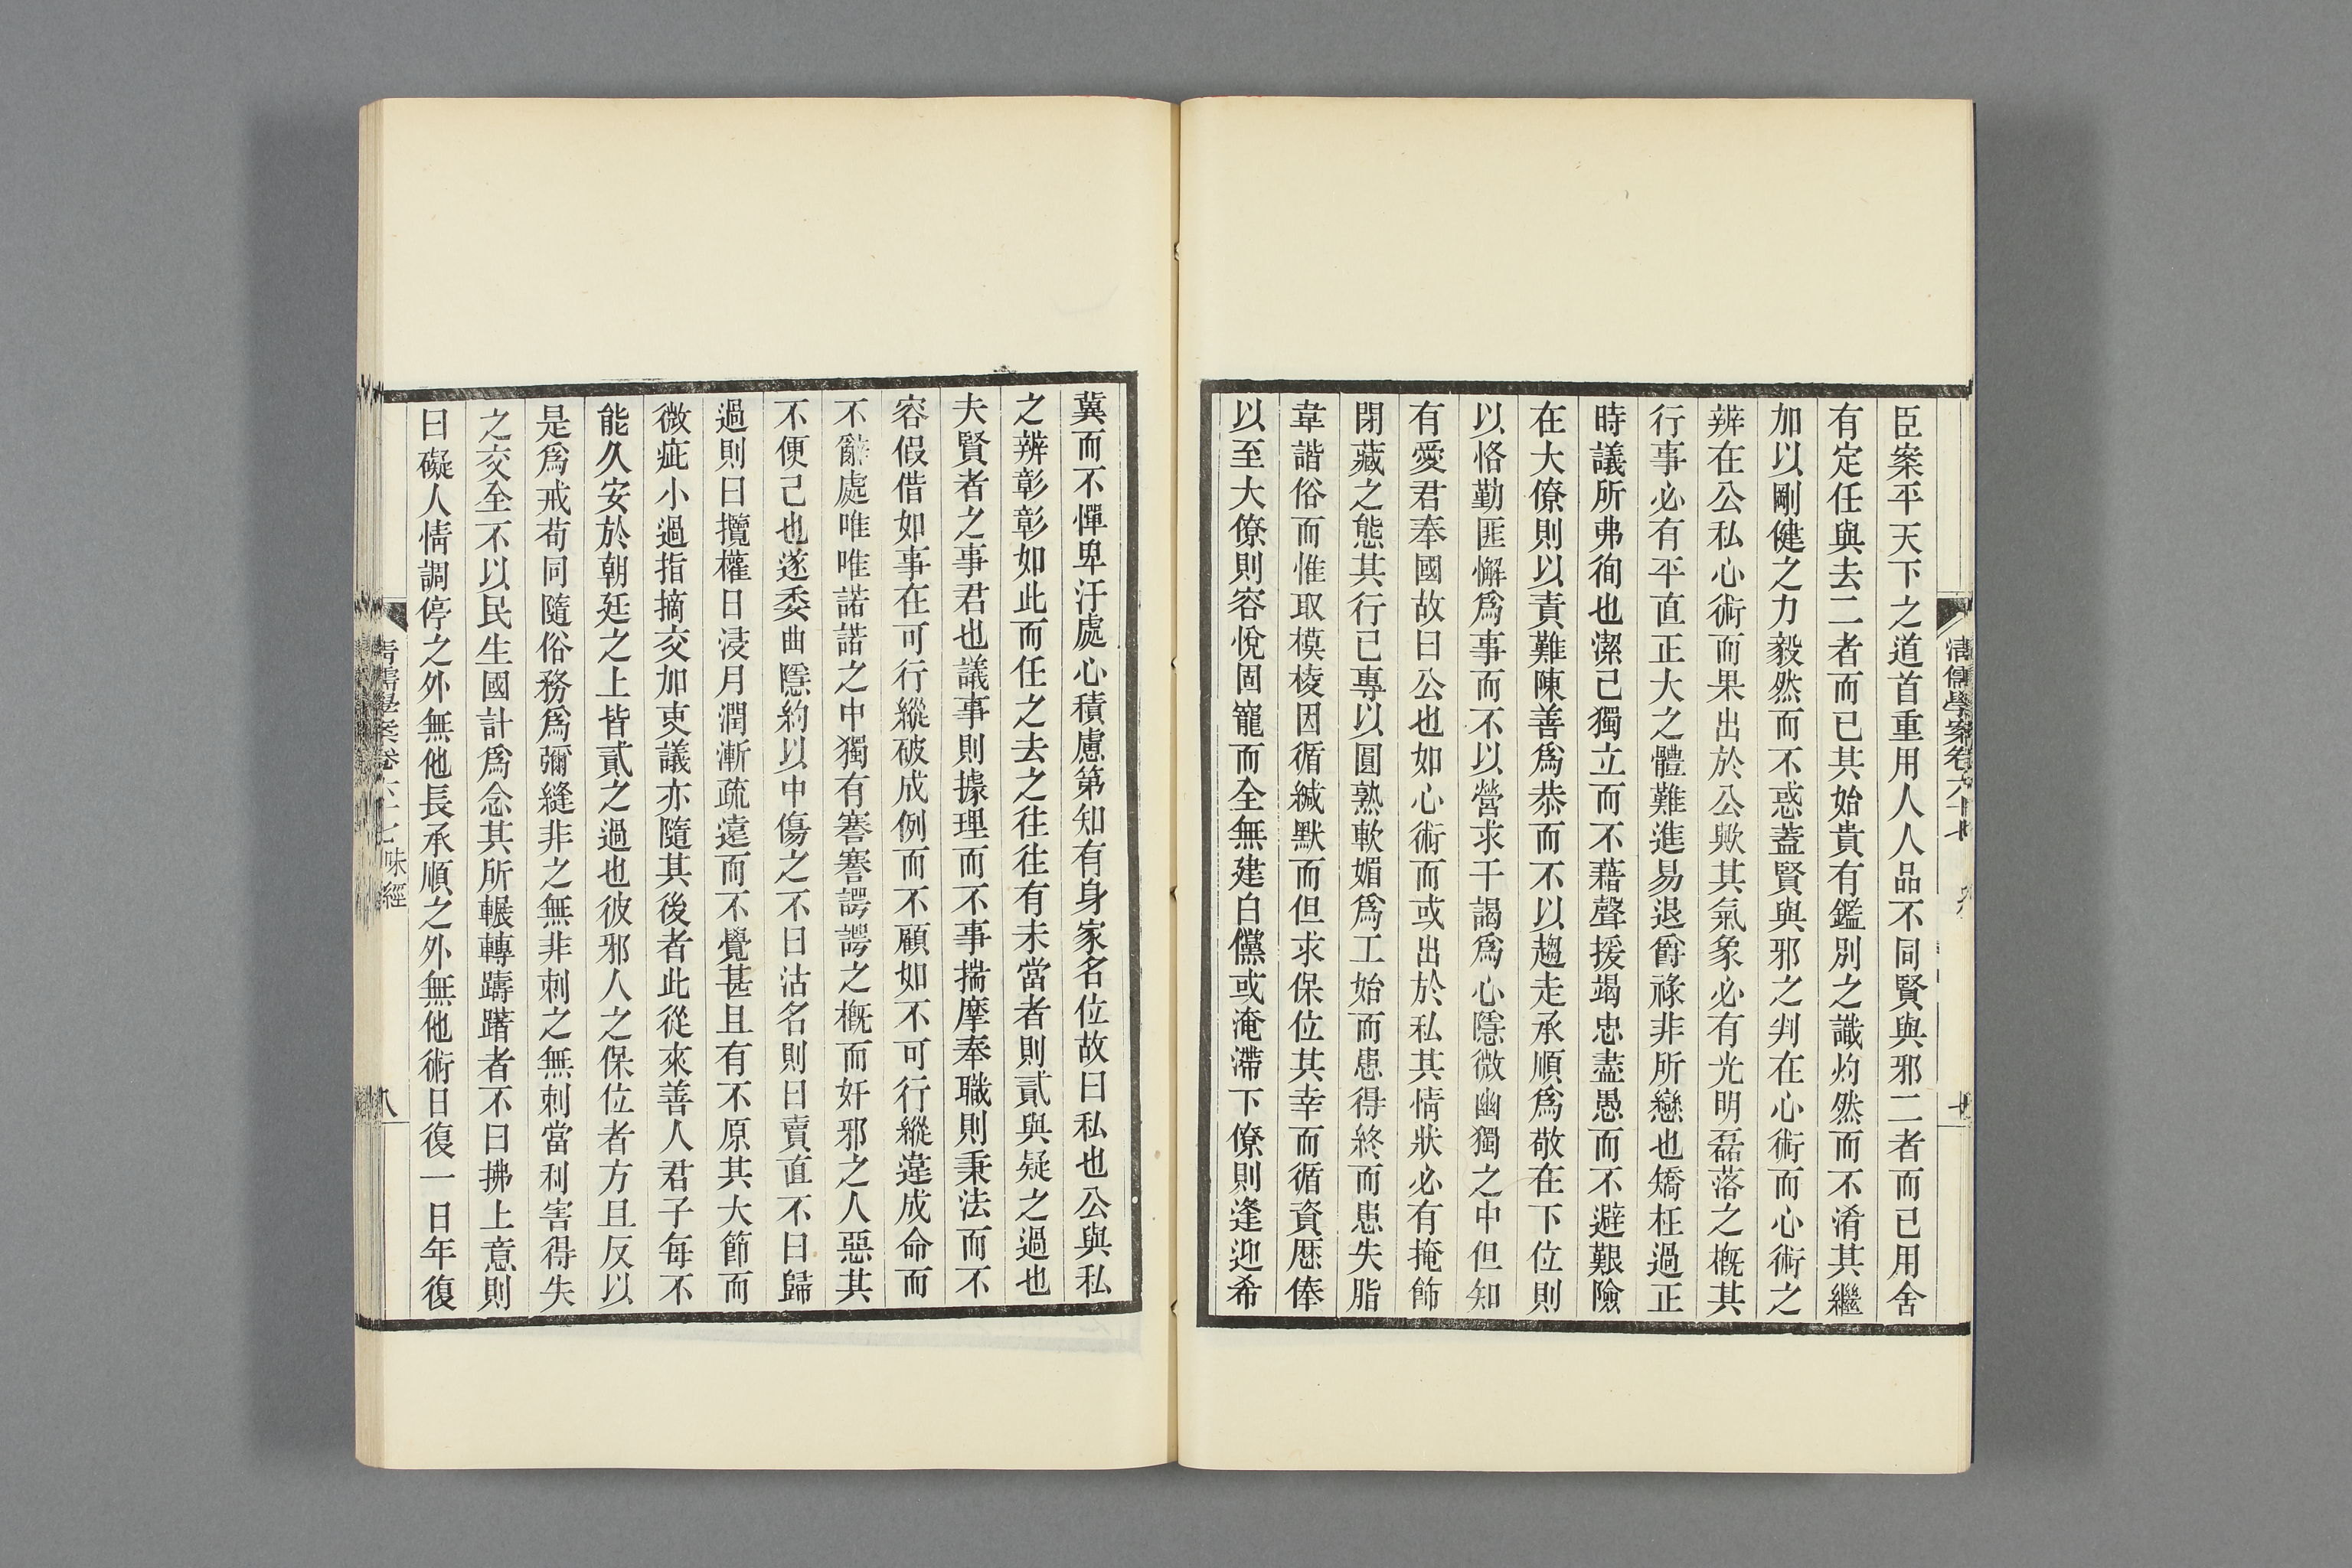 臣案平天下之道首重用人人品不同賢與邪二者而已用舍
有定任與去二者而已其始貴有鑑別之識灼然而不淆其繼
加以剛健之力毅然而不惑蓋賢與邪之判在心術而心術之
辨在公私心術而果出於公歟其氣象必有光明磊落之概其
行事必有平直正大之體難進易退爵祿非所戀也矯枉過正
時議所弗徇也潔己獨立而不藉聲援竭忠盡愚而不避艱險
在大僚則以責難陳善爲恭而不以趨走承順爲敬在下位則
以恪勤匪懈爲事而不以營求干謁爲心隱微幽獨之中但知
有愛君奉國故曰公也如心術而或出於私其情狀必有掩飾
閉藏之態其行己專以圓熟軟媚爲工始而患得終而患失脂
韋諧俗而惟取模棱因循緘默而但求保位其幸而循資歷俸
以至大僚則容悅固寵而全無建白儻或淹滯下僚則逢迎希
冀而不憚卑汙處心積慮第知有身家名位故曰私也公與私
之辨彰彰如此而任之去之往往有未當者則貳與疑之過也
夫賢者之事君也議事則據理而不事揣摩奉職則秉法而不
容假借如事在可行縱破成例而不顧如不可行縱違成命而
不辭處唯唯諾諾之中獨有謇謇諤諤之概而奸邪之人惡其
不便己也遂委曲隱約以中傷之不曰沽名則曰賣直不曰歸
過則曰攬權日浸月潤漸疏遠而不覺甚且有不原其大節而
微疵小過指摘交加吏議亦隨其後者此從來善人君子每不
能久安於朝廷之上皆貳之過也彼邪人之保位者方且反以
是爲戒苟同隨俗務爲彌縫非之無非刺之無刺當利害得失
之交全不以民生國計爲念其所輾轉躊躇者不曰拂上意則
曰礙人情調停之外無他長承順之外無他術日復一日年復
清儒學案卷六十七 味經
八